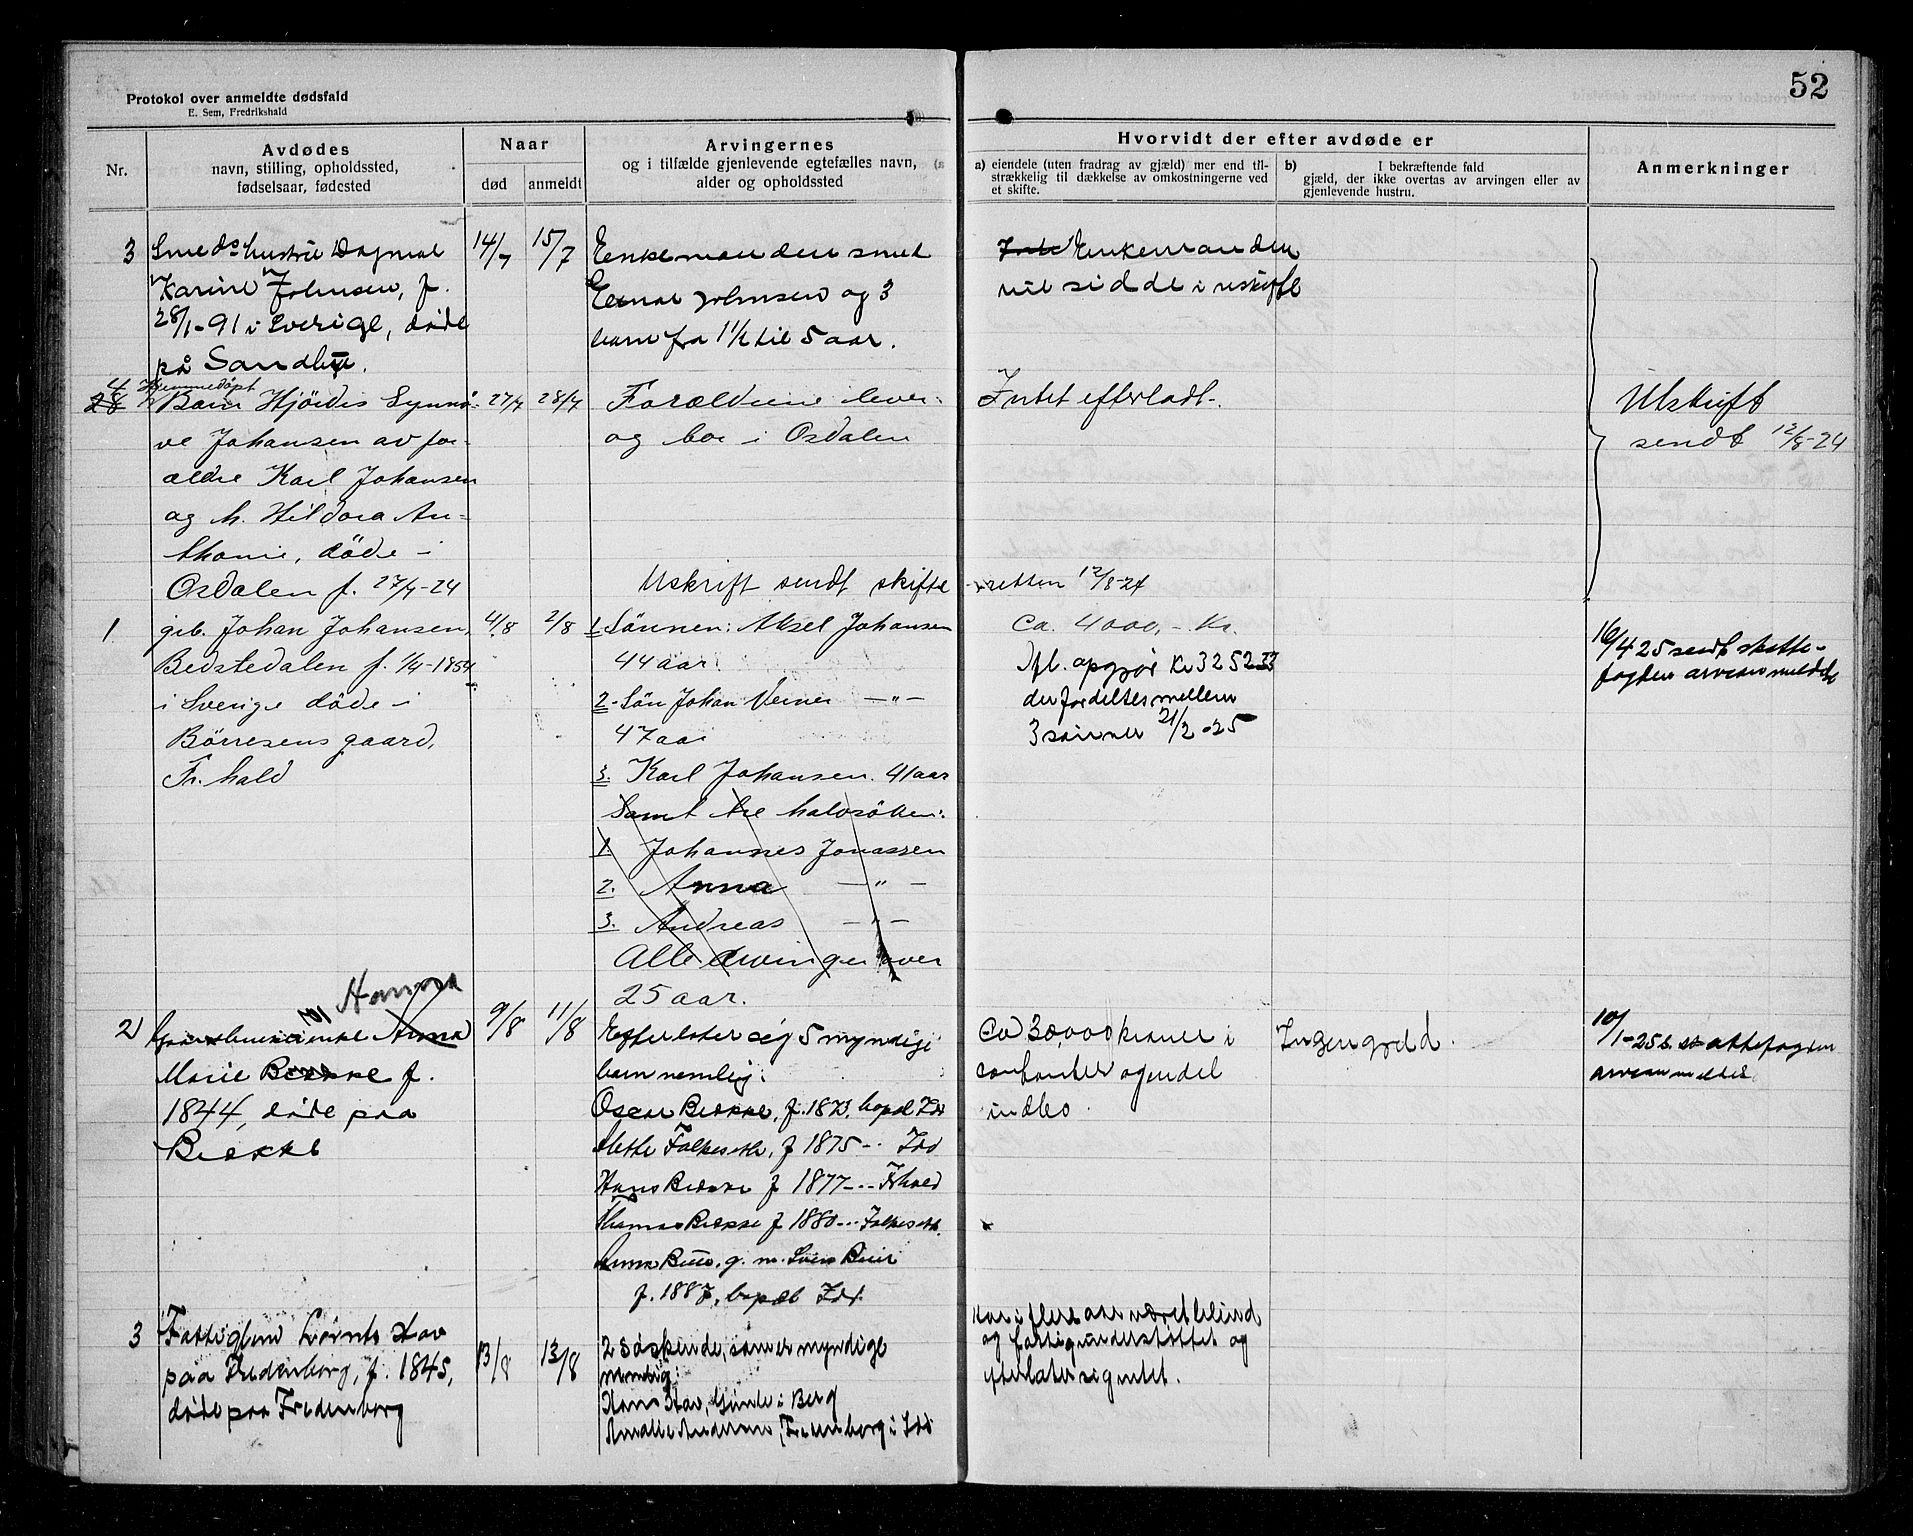 52
Protokol over anmeldte dødsfald
E. Sem, Fredrikshald
Nr.
Avdødes
navn, stilling, opholdssted,
fødselsaar, fødested
Naar
død
anmeldt
Arvingernes
og i tilfælde gjenlevende egtefælles navn,
alder og opholdssted
Hvorvidt der efter avdøde er
a) eiendele (uten fradrag av gjæld) mer end til-
strækkelig til dækkelse av omkostningerne ved
et skifte.
b) I bekræftende fald
gjæld, der ikke overtas av arvingen eller av
gjenlevende hustru.
Anmerkninger
3
Smeds hustru Dagmar
Karine Johnsen, f.
28/1-91 i Sverige, døde
på
14/7
15/7
Enkemanden smed
Johnsen og 3
barn fra 1½ til 5 aar.
Enkemanden
vil sidde i uskifte
4
28
Hjemmedöpt
Barn Hjördis Synnö-
ve Johansen av for-
ældre Karl Johansen
og h. Hildora An-
thonie, döde i
Osdalen f. 27/7-24
27/7
28/7
Forældrene lever
og bor i Osdalen
Intet efterladt.
Utskrift
sendt 12/8-24
Utskrift sendt skifte-
retten 12/8-24
1
Johan Johansen,
Bedstedalen f. 1/4-1854
i Sverige döde i
Börresens gaard,
Fr.hald
4/8
2/8
1. Sönnen: Aksel Johansen
44 aar
2. Sön Johan Verner —"—
47 aar
3. Karl Johansen. 41 aar
Samt tre halvsöken:
1. Johannes Jonassen
2. Anna —"—
3. Andreas —"—
Alle arvinger over
25 aar.
Ca. 4000,- Kr.
Ifl. opgjør Kr 3252
der fordeltes mellem
3 sønner 21/2-25
16/4 25 sendt skatte-
fogden arveanmeldelse
2)
enke Anna
Hanna
Marie Bække f.
1844, døde paa
Bække
9/8
11/8
Efterlater sig 5 myndige
barn nemlig:
Oscar Bække, f. 1873, bopæl Idd
Mette Folkeseth, f 1875 -- Idd
Hans Bække f 1877 --- Frhald
Thomas Bække f 1880 --- Folkeseth.
Anna g. m. Sven
f. 1887, bopæl Idd.
Ca 30,000 kroner i
contanter og endel
indbo.
Ingen gjæld.
10/1-25 s. skattefogden
arveanmeldels.
3
Fattiglem Stav
paa Fredenborg, f. 1845,
døde paa Fredenborg
13/8
13/8
2 søskende, som er myndige
nemlig:
Hans Stav, i Berg
Amalie Andersen, Fredenborg i Idd
Har i flere aar været blind
og fattigunderstøttet og
efterlater sig intet.